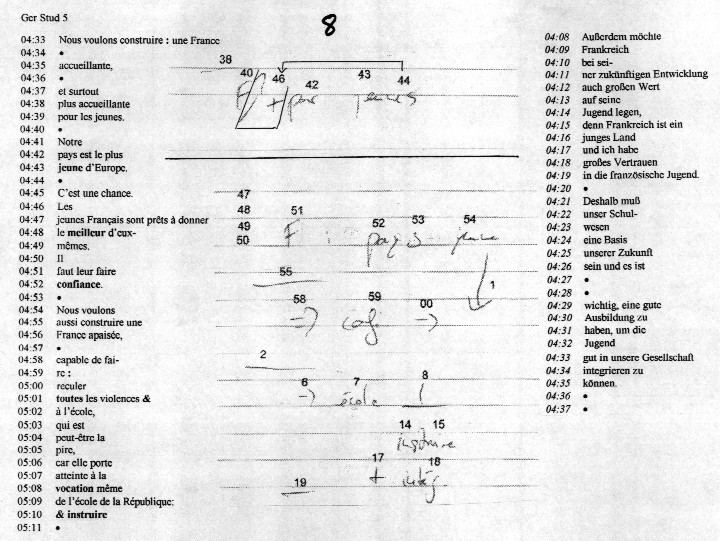 Ger Stud 5
8
04:33 Nous voulons construire : une France
04:34 •
04:35 accueillante,
04:36 •
04:37 et surtout
04:38 plus accueillante
04:39 pour les jeunes.
04:40 •
04:41 Notre
04:42 pays est le plus
04:43 jeune d'Europe.
04:44 •
04:45 C'est une chance.
04:46 Les
04:47 jeunes Français sont prêts à donner
04:48 le meilleur d'eux-
04:49 mêmes.
04:50 Il
04:51 faut leur faire
04:52 confiance.
04:53 •
04:54 Nous voulons
04:55 aussi construire une
04:56 France apaisée,
04:57 •
04:58 capable de fai-
04:59 re :
05:00 reculer
05:01 toutes les violences &
05:02 à l'école,
05:03 qui est
05:04 peut-être la
05:05 pire,
05:06 car elle porte
05:07 atteinte à la
05:08 vocation même
05:09 de l'école de la République:
05:10 & instruire
05:11 •
38
40 46 42 43 44
F + pour jeunes
47
48 51
49 52 53 54
50 F : pays jeune
55
1
58 59 00
⇒ →
2
6 7 8
→ école !
14 15
instruire
17 18
+ intég
19
04:08 Außerdem möchte
04:09 Frankreich
04:10 bei sei-
04:11 ner zukünftigen Entwicklung
04:12 auch großen Wert
04:13 auf seine
04:14 Jugend legen,
04:15 denn Frankreich ist ein
04:16 junges Land
04:17 und ich habe
04:18 großes Vertrauen
04:19 in die französische Jugend.
04:20 •
04:21 Deshalb muß
04:22 unser Schul-
04:23 wesen
04:24 eine Basis
04:25 unserer Zukunft
04:26 sein und es ist
04:27 •
04:28 •
04:29 wichtig, eine gute
04:30 Ausbildung zu
04:31 haben, um die
04:32 Jugend
04:33 gut in unsere Gesellschaft
04:34 integrieren zu
04:35 können.
04:36 •
04:37 •